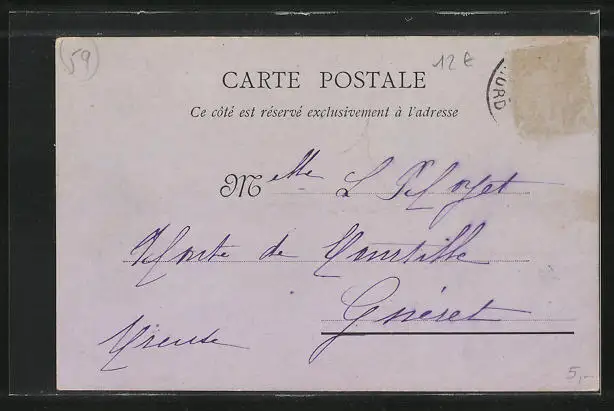 (59)
12€
CARTE POSTALE
NORD
Ce côté est réservé exclusivement à l'adresse
Melle L
Route de Courtille
Guéret
Creuse
5,-